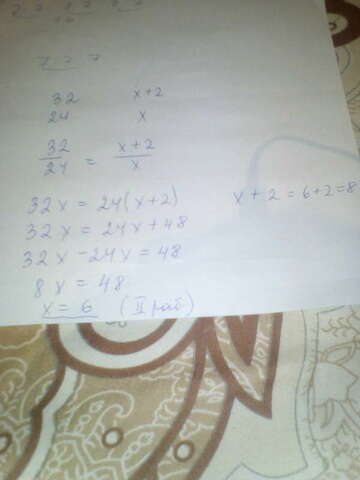 32 x+2
24 x
32/24 = x+2/x
32x = 24(x+2) x+2 = 6+2=8
32x = 24x+48
32x -24x = 48
8x = 48
x = 6 (II раб)